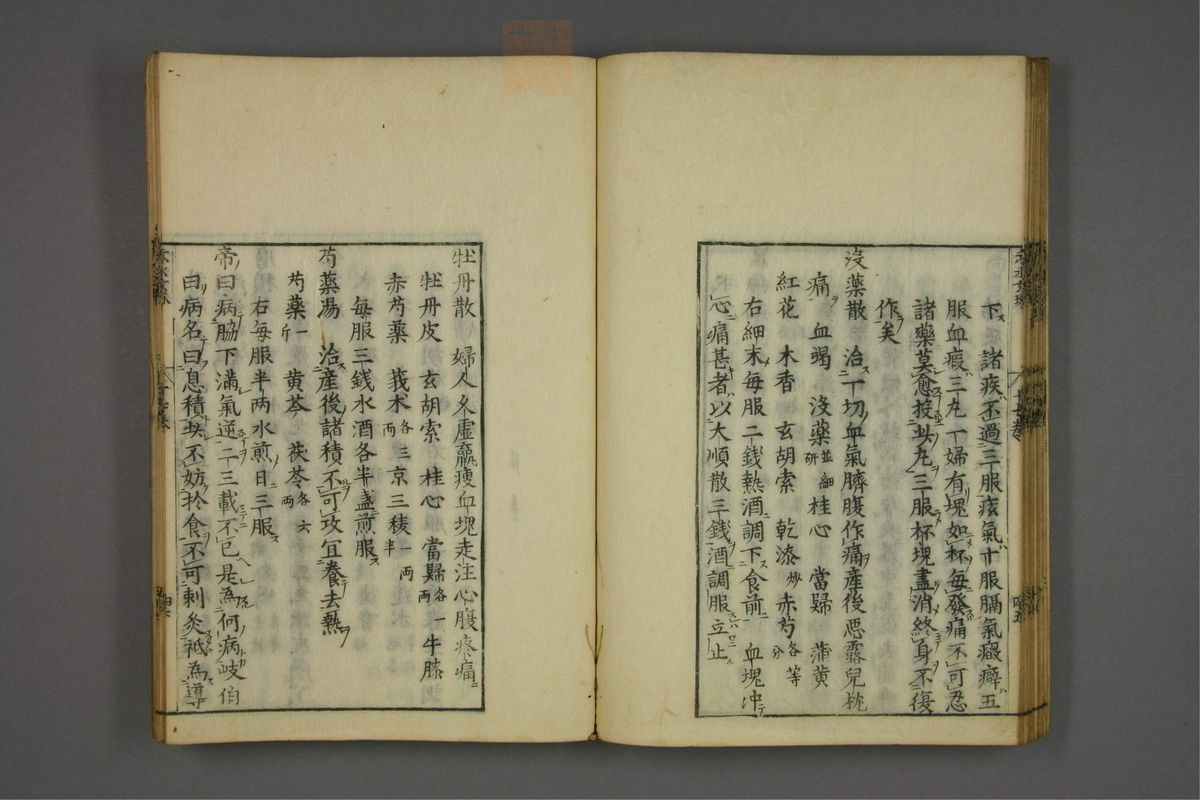 下諸疾不過三服痃氣十服膈氣癥癖五
服血瘕三丸一婦有塊如杯每發痛不可忍
諸藥莫愈投此丸三服杯塊盡消終身不復
作矣
沒藥散 治一切血氣臍腹作痛產後惡露兒枕
痛 血竭 沒藥並細研 桂心 當歸 蒲黄
紅花 木香 玄胡索 乾漆炒 赤芍各等分
右細末每服二錢熱酒調下食前 血塊冲
心痛甚者以大順散三錢酒調服立止
牡丹散 婦人久虛羸瘦血塊走注心腹疼痛
牡丹皮 玄胡索 桂心 當歸各一両 牛膝
赤芍藥 莪朮各三両 京三稜一両半
每服三錢水酒各半盞煎服
芍藥湯 治產後諸積不可攻宜養去熱
芍藥一斤 黄芩 茯苓各六両
右每服半両水煎日三服
帝曰病脇下滿氣逆二三載不已是為何病岐伯
曰病名曰息積此不妨於食不可刺灸祗為導